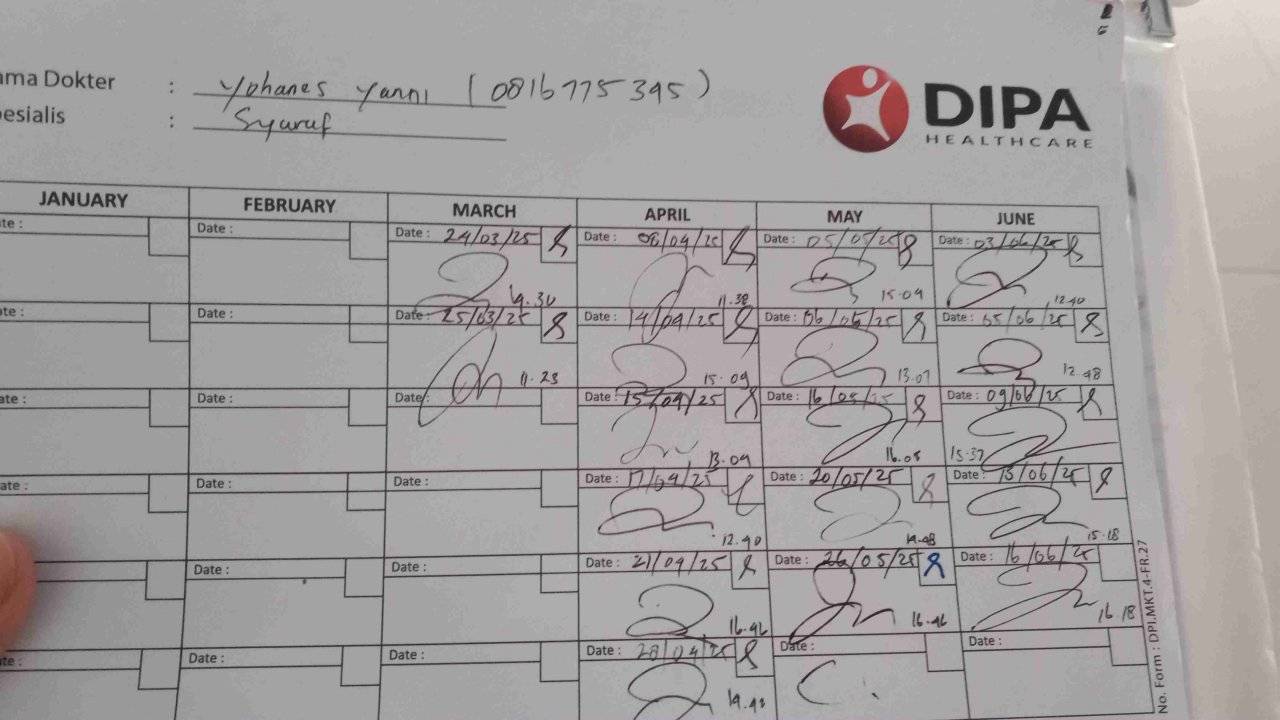 ama Dokter : Yohanes Yanni (0816775395)
esialis : Syaraf
DIPA
HEALTHCARE
JANUARY FEBRUARY MARCH APRIL MAY JUNE
te : Date : Date : 24/03/25 Date : 08/04/25 Date : 05/05/25 Date : 03/06/25
11.38 15.09 12.40
te : Date : Date : 25/03/25 Date : 14/04/25 Date : 06/05/25 Date : 05/06/25
11.23 15.09 13.07 12.48
ate : Date : Date : Date : 15/04/25 Date : 16/05/25 Date : 09/06/25
13.09 16.05 15.37
ate : Date : Date : Date : 17/04/25 Date : 20/05/25 Date : 13/06/25
12.40 14.48 15.18
Date : Date : Date : 21/04/25 Date : 26/05/25 Date : 16/06/25
16.46 16.46 16.18
te : Date : Date : Date : 28/04/25 Date : Date :
14.43
No. Form : DPI.MKT.4-FR.27